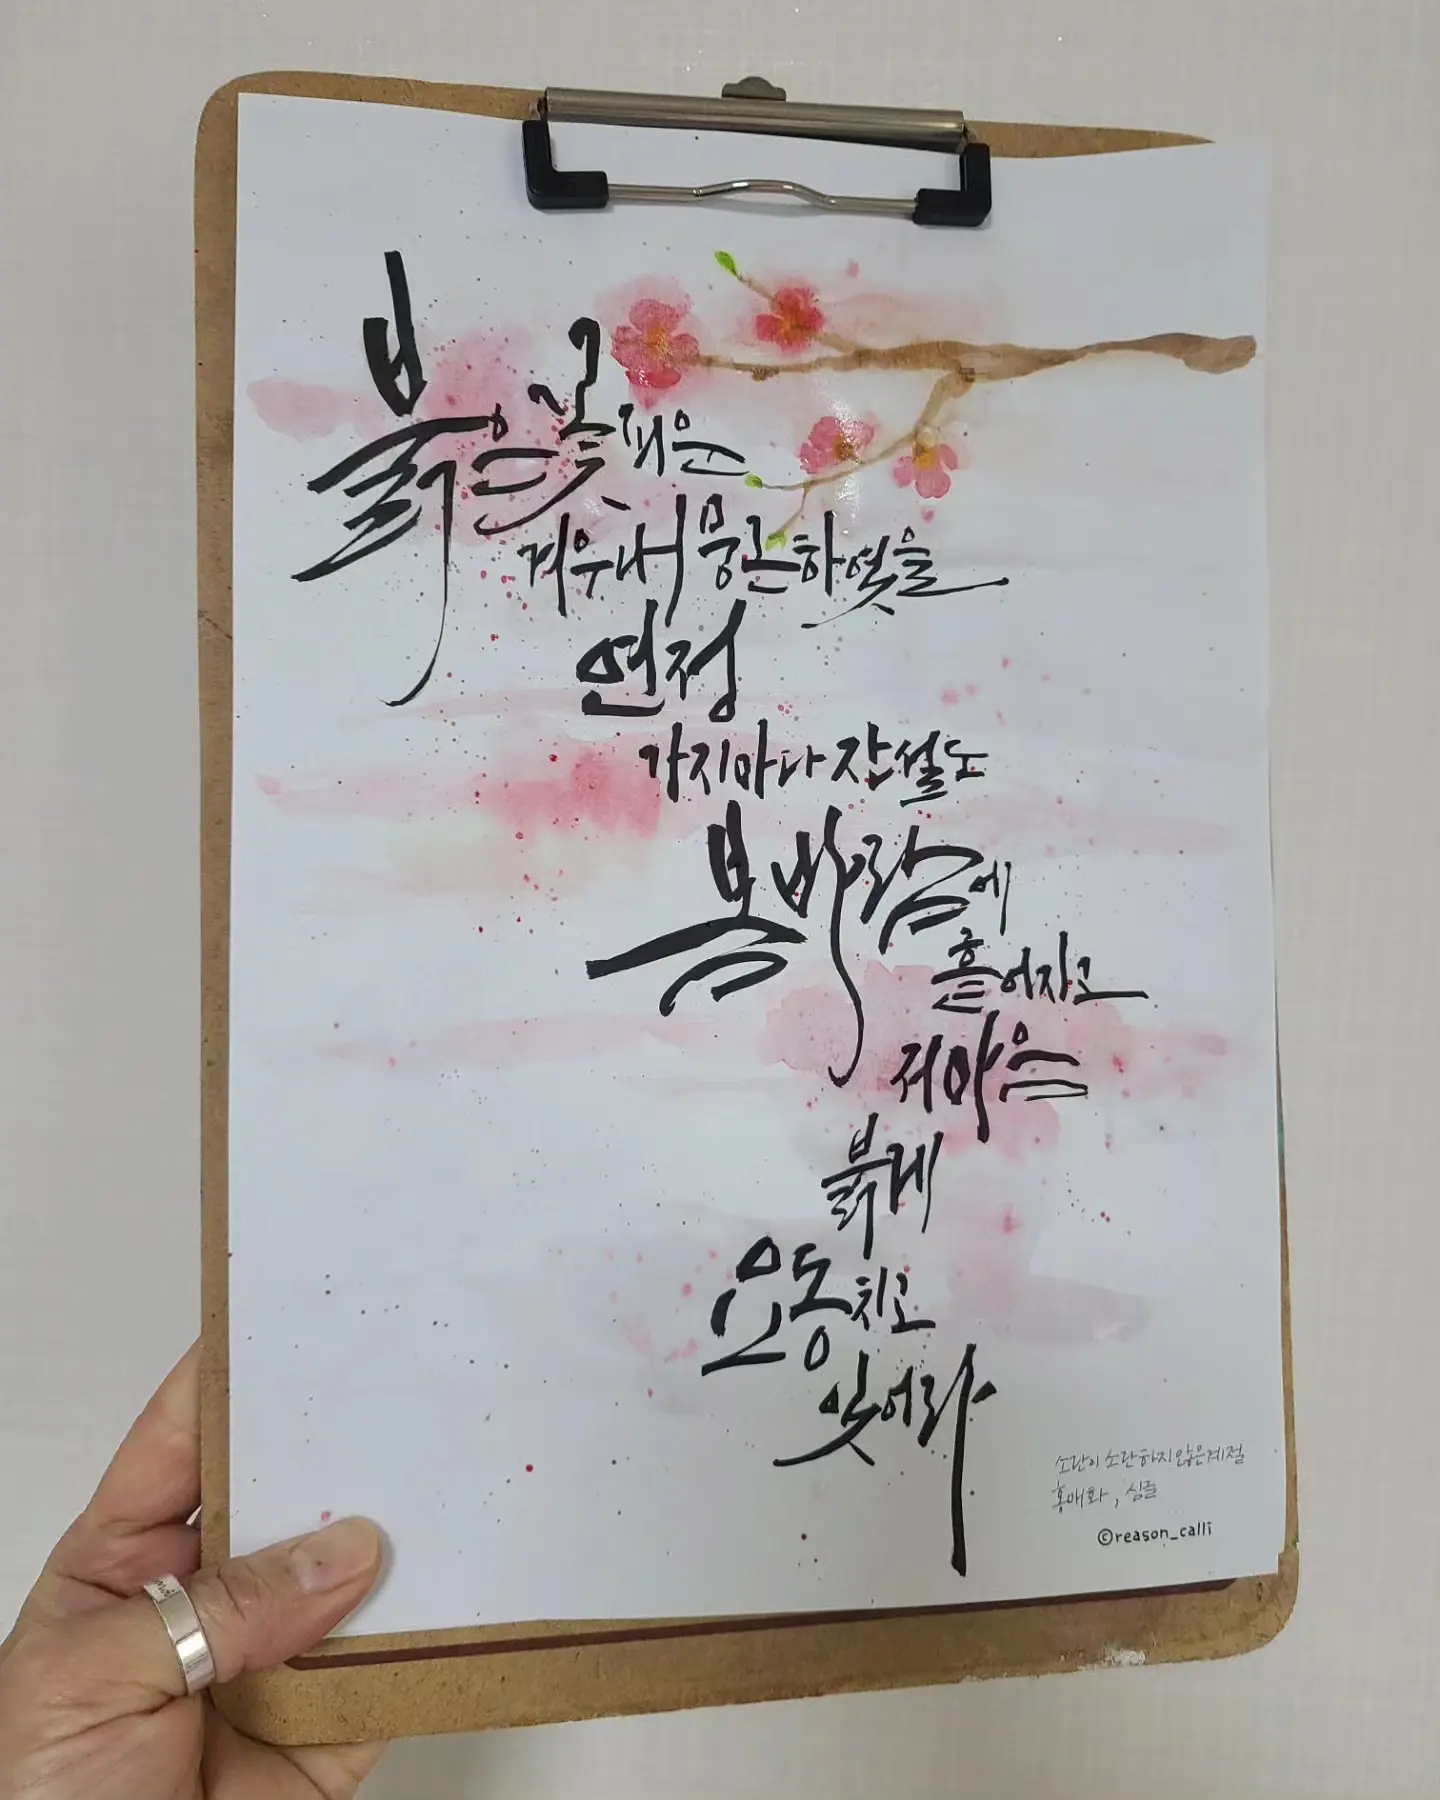 붉은 꽃 피운
겨우내 뭉근하였을
연정
가지마다 잔설도
봄바람에
흩어지고
저마음
붉게
요동치고
있어라
소란이 소란하지 않은 계절
홍매화, 심플
©reason_calli